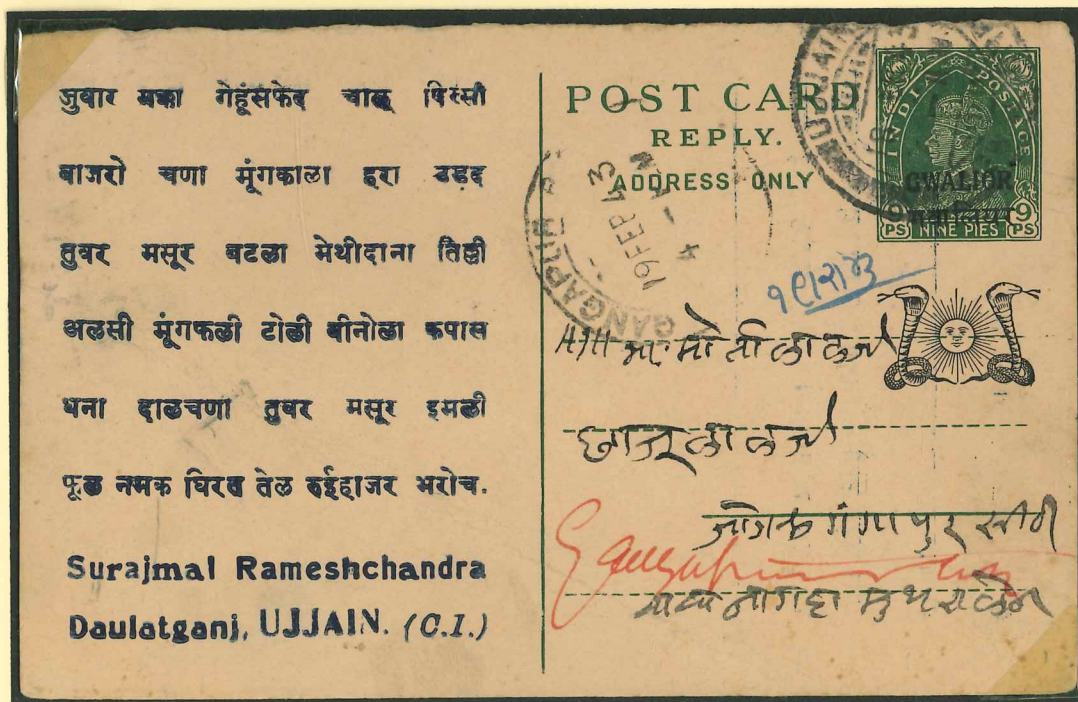 जुवार मका गेहूंसफेद चालू पिस्सी
बाजरो चणा मूंगकाला हरा उड़द
तुवर मसूर बटला मेथीदाना तिल्ली
अलसी मूंगफली टोली बीनोला कपास
धना दालचणा तुवर मसूर इमली
फूल नमक घिरत तेल रुईहाजर भरोच.
Surajmal Rameshchandra
Daulatganj, UJJAIN. (C.I.)
POST CARD
REPLY.
ADDRESS ONLY
UJJAIN
INDIA POSTAGE
GWALIOR
ग्वालियर
9 9
PS NINE PIES PS
GANGAPUR
19 FEB 43
मोतीलालजी
छाजूलालजी
गंगापुर सीटी
नागदा मथुरा